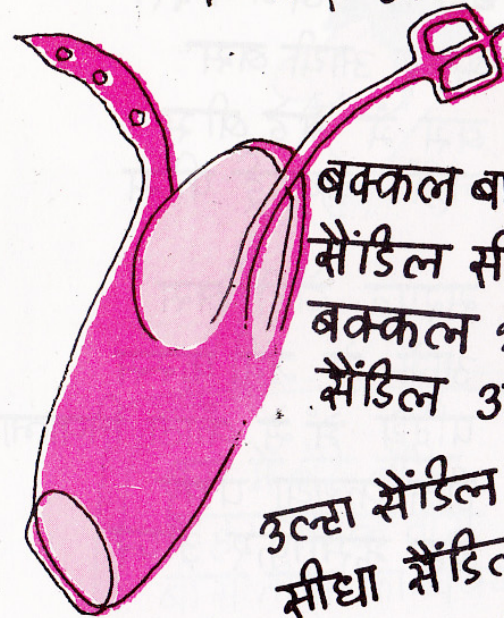 बक्कल
सैंडिल
बक्कल
सैंडिल
उल्टा सैंडिल
सीधा सैंडिल